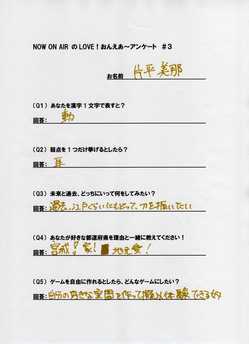 NOW ON AIR のLOVE!おんえあ〜アンケート #3
お名前 片平美那
(Q1) あなたを漢字1文字で表すと?
回答: 動
(Q2) 弱点を1つだけ挙げるとしたら?
回答: 耳
(Q3) 未来と過去、どっちにいって何をしてみたい?
回答: 過去。江戸くらいにもどって、刀を振いたい
(Q4) あなたが好きな都道府県を理由と一緒に教えてください!
回答: 宮城! 地元愛!
(Q5) ゲームを自由に作れるとしたら、どんなゲームにしたい?
回答: 自分の好きな空間を作って擬似体験できる奴